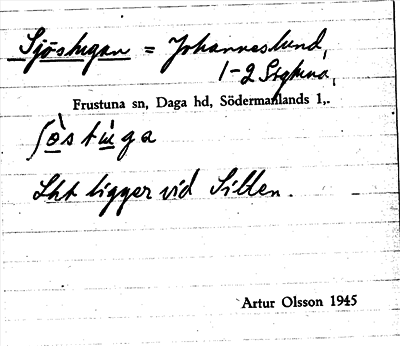 Sjöstugan = Johanneslund,
1-2 Sigtuna,
Frustuna sn, Daga hd, Södermanlands l,.
ʃö̀stùga
Sht ligger vid Sillen.
Artur Olsson 1945